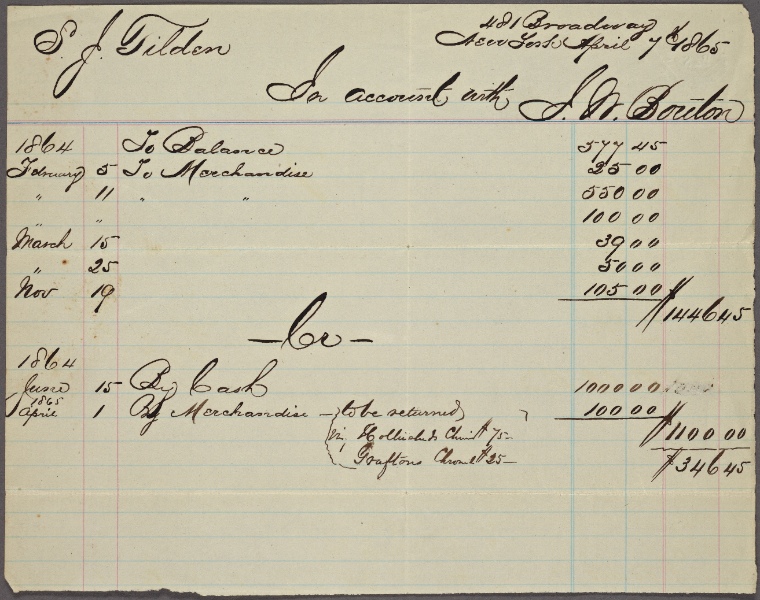 S. J. Tilden
481 Broadway
New York April 7th 1865
In account with J. W. Bouton
1864 To Balance 577 45
February 5 To Merchandise 25 00
" 11 " " 550 00
" 100 00
March 15 39 00
" 25 50 00
Nov 19 105 00
$1446 45
— Cr —
1864
June 15 By Cash 1000 00
1865
April 1 By Merchandise — (to be returned) 100 00
Chron $75—
$1100 00
Graftons Chronl $25—
$346 45